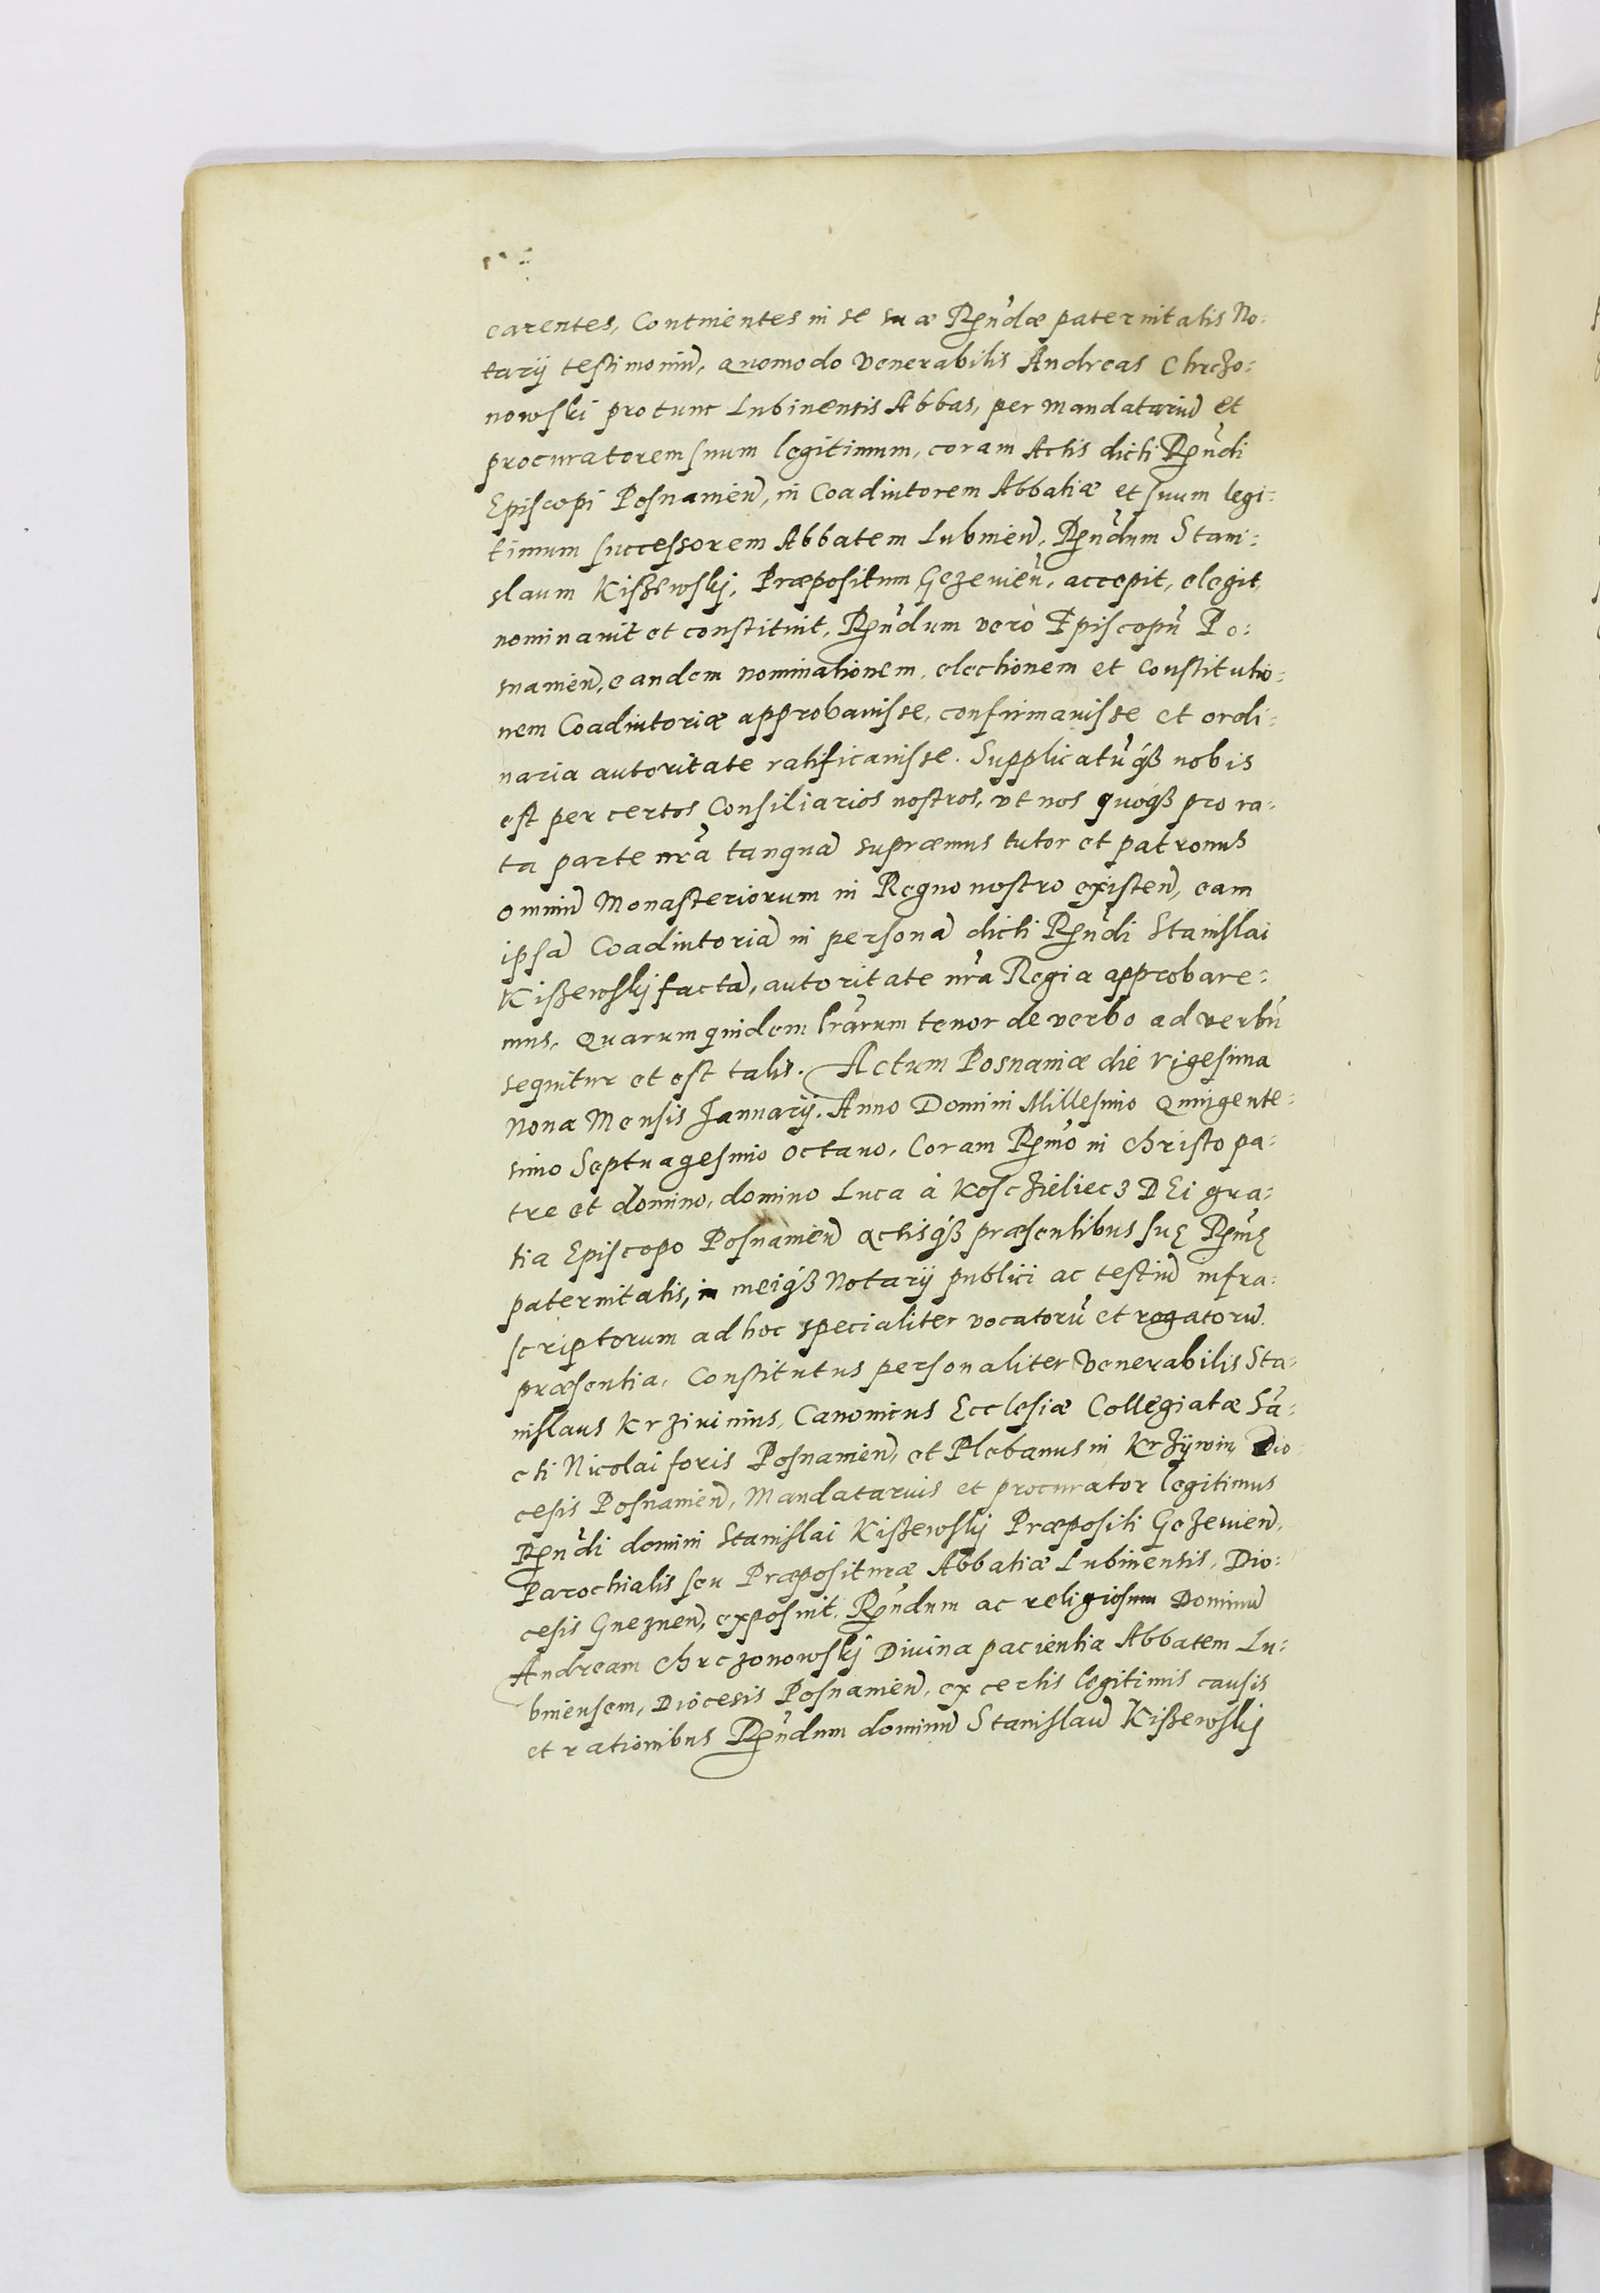 carentes, Continentes in se suæ Rn̄dæ paternitatis No:
tarij testimoniū, quomodo venerabilis Andreas Chrczo:
nowski protunc Lubinensis Abbas, per mandatariū et
procuratorem suum legitimum, coram Actis dicti Rn̄di
Episcopi Posnamien̄, in Coadiutorem Abbatiæ et suum legi:
timum successorem Abbatem Lubinen̄, Rn̄dum Stani:
slaum Kißewskj, Præpositum Gezevien̄, accepit, elegit,
nominauit et constituit, Rn̄dum verò Episcopū Po:
snamien̄, eandem nominationem, electionem et constitutio:
nem Coadiutoriæ approbauisse, confirmauisse et ordi:
naria autoritate ratificauisse. Supplicatūqß nobis
est per certos Consiliarios nostros, vt nos quoqß pro ra:
ta parte nr̄a tanquā supræmus tutor et patronus
omniū Monasteriorum in Regno nostro existen̄, eam
ipsā Coadiutoriā in personā dicti Rn̄di Stanislai
Kißewskj factā, autoritate nr̄a Regia approbare:
mus, Quarum quidem lr̄arum tenor de verbo ad verbū
sequitur et est talis. Actum Posnaniæ die vigesima
Nona Mensis Januarij. Anno Domini Millesimo Quingente:
simo Septuagesimo octauo, Coram Rm̄o in Christo pa:
tre et domino, domino Luca à Kosczieliecz DEi gra:
tia Episcopo Posnamien̄ actisqß præsentibus suę Rm̄ę
paternitatis, in meiqß Notarij publici ac testiū infra:
scriptorum ad hoc specialiter vocatorū et rogatorū
præsentia, Constitutus personaliter Venerabilis Sta:
nislaus Krziuinius, Canonicus Ecclesiæ Collegiatæ Sā:
cti Nicolai foris Posnamien̄, et Plebanus in Krzÿwin, Dio:
cesis Posnamien̄, Mandatarius et procurator legitimus
Rn̄di domini Stanislai Kißewskij Præpositi Gezevien̄,
Parochialis seu Præposituræ Abbatiæ Lubinensis, Dio:
cesis Gneznen̄, exposuit, Rn̄dum ac religiosum Dominū
Andream Chrczonowskj Diuina pacientia Abbatem Lu:
binensem, Diocesis Posnamien̄, ex certis legitimis causis
et rationibus Rn̄dum dominū Stanislaū Kißewskij